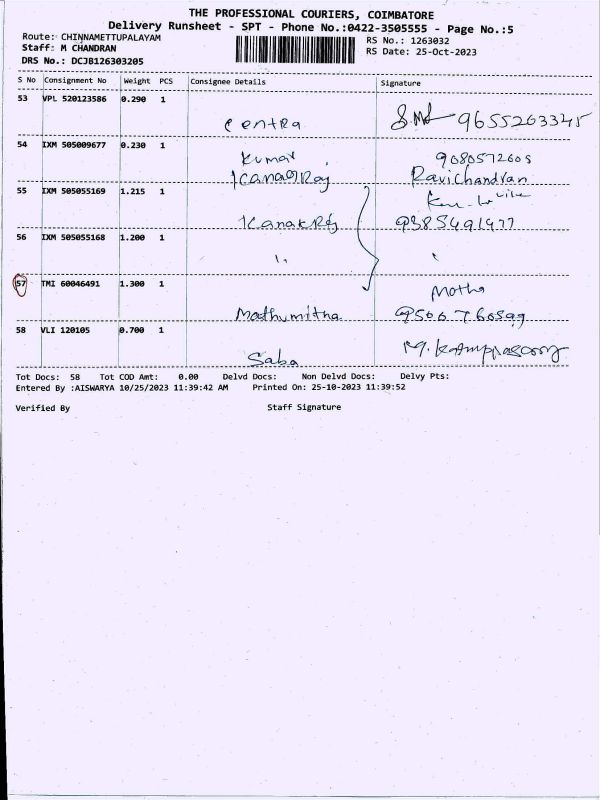 THE PROFESSIONAL COURIERS, COIMBATORE
Delivery Runsheet - SPT - Phone No.:0422-3505555 - Page No.:5
Route: CHINNAMETTUPALAYAM
RS No.: 1263032
Staff: M CHANDRAN
RS Date: 25-Oct-2023
DRS No.: DCJB126303205
S No Consignment No Weight PCS Consignee Details Signature
53 VPL 520123586 0.290 1
Centra 9655263345
54 IXM 505009677 0.230 1
Kumar 9080572605
Ravichandran
55 IXM 505055169 1.215 1
9385491977
56 IXM 505055168 1.200 1
57 TMI 60046491 1.300 1
Madhumitha
58 VLI 120105 0.700 1
Saba
Tot Docs: 58 Tot COD Amt: 0.00 Delvd Docs: Non Delvd Docs: Delvy Pts:
Entered By :AISWARYA 10/25/2023 11:39:42 AM Printed On: 25-10-2023 11:39:52
Verified By Staff Signature